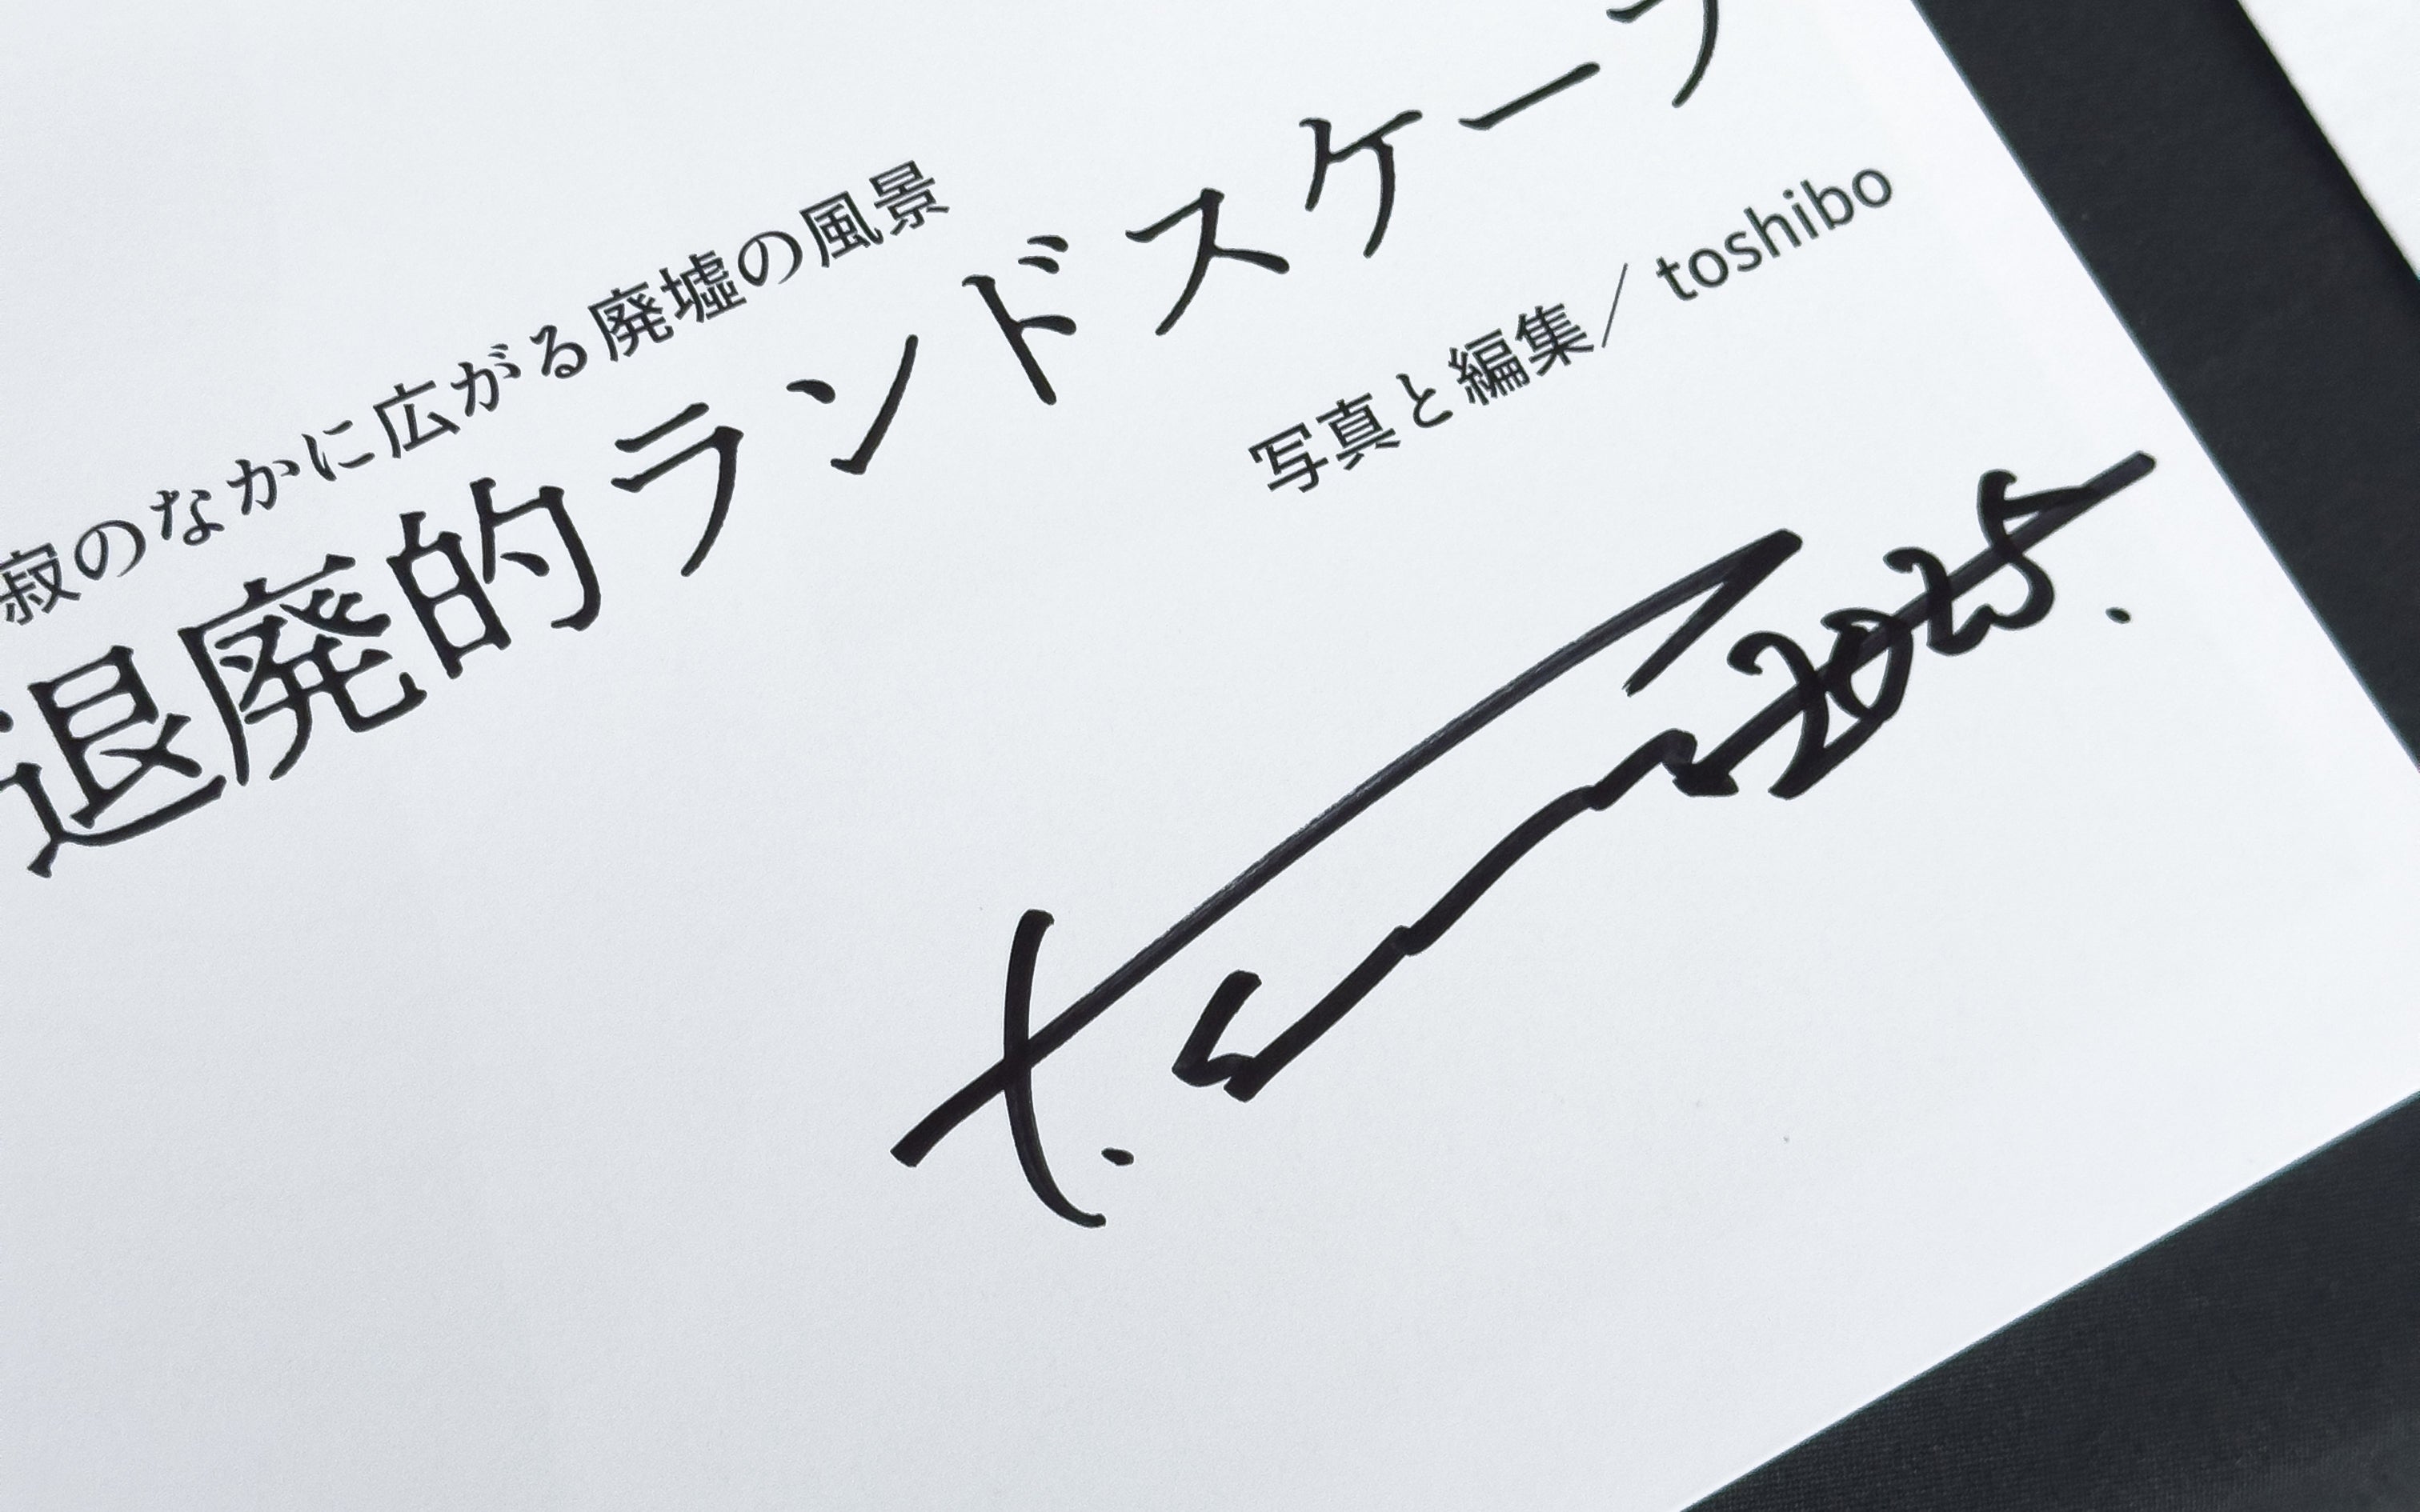 寂のなかに広がる廃墟の風景
退廃的ランドスケープ
写真と編集／toshibo
2025.